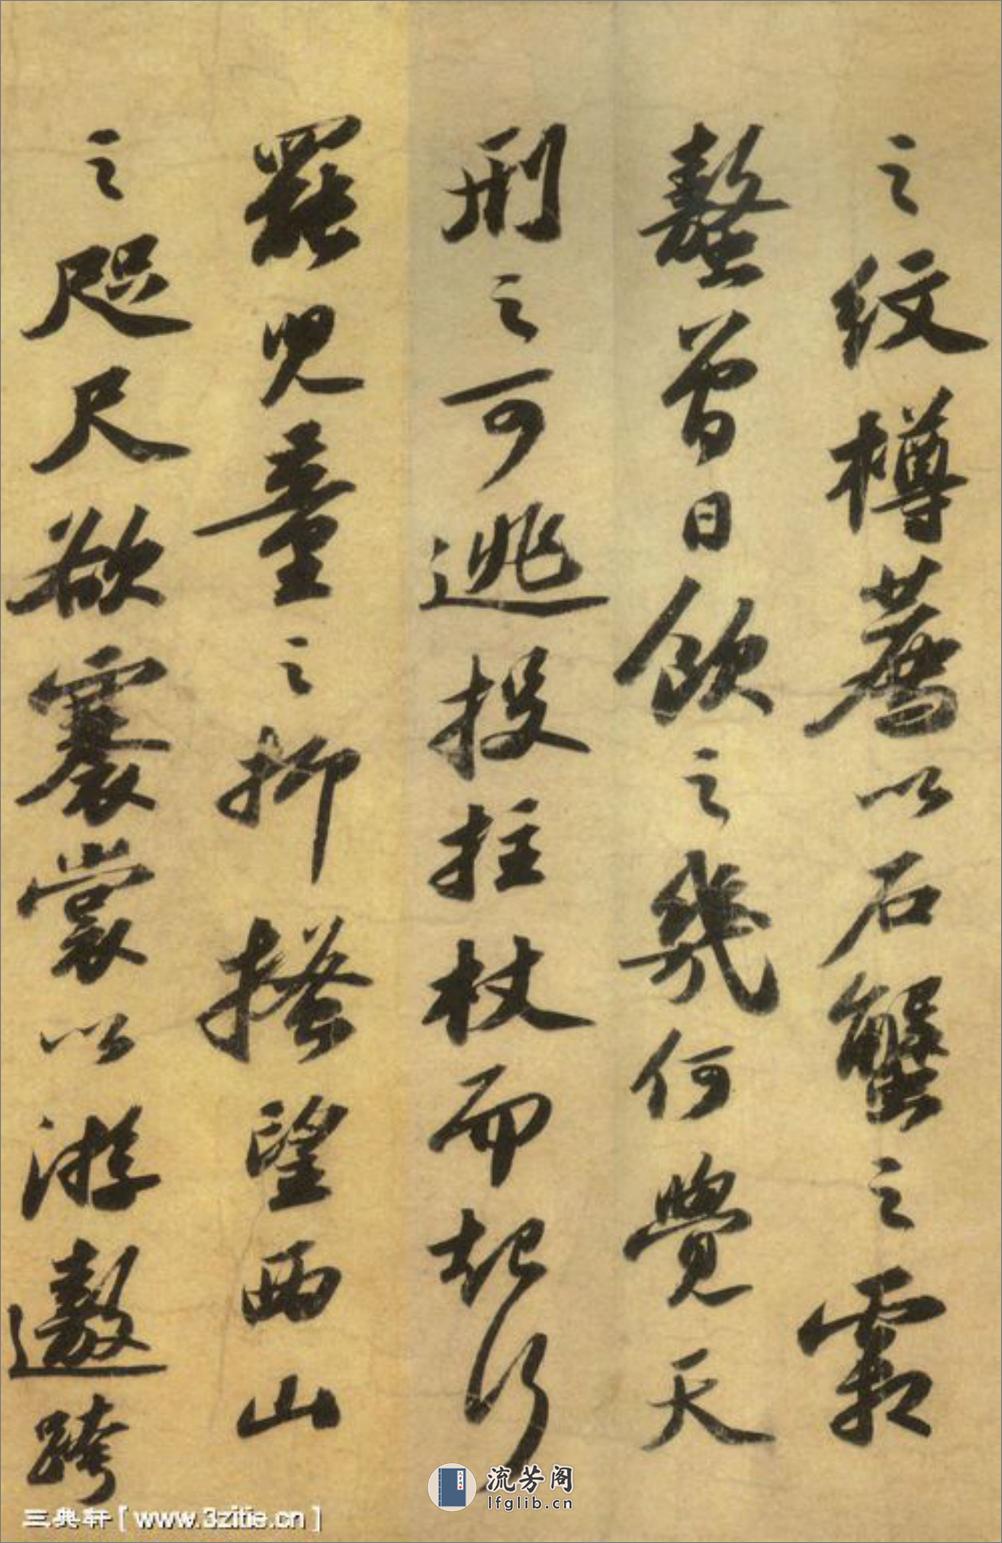 之纹樽荐以石蟹之霜
螯曾日饮之几何觉天
刑之可逃投拄杖而起行
罢儿童之抑搔望西山
之咫尺欲褰裳以游遨跨
流芳阁
lfglib.cn
三典轩[www.3zitie.cn]